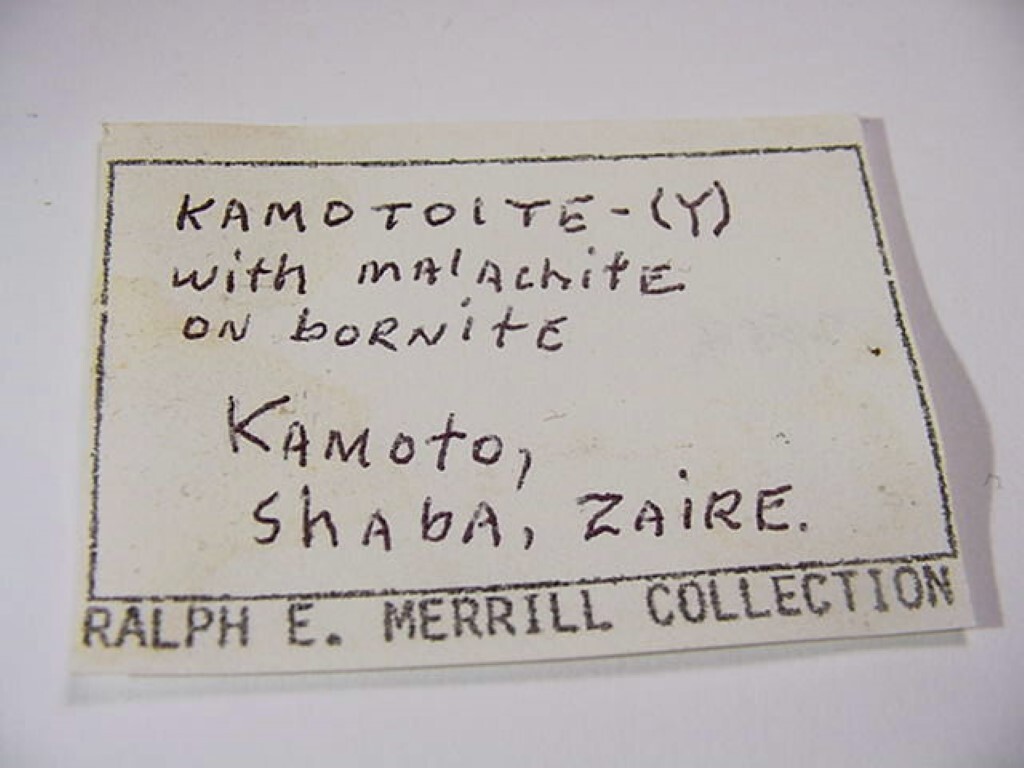 KAMOTOITE-(Y)
with MALAchitE
ON bORNitE
KAMOtO,
ShAbA, ZAiRE.
RALPH E. MERRILL COLLECTION